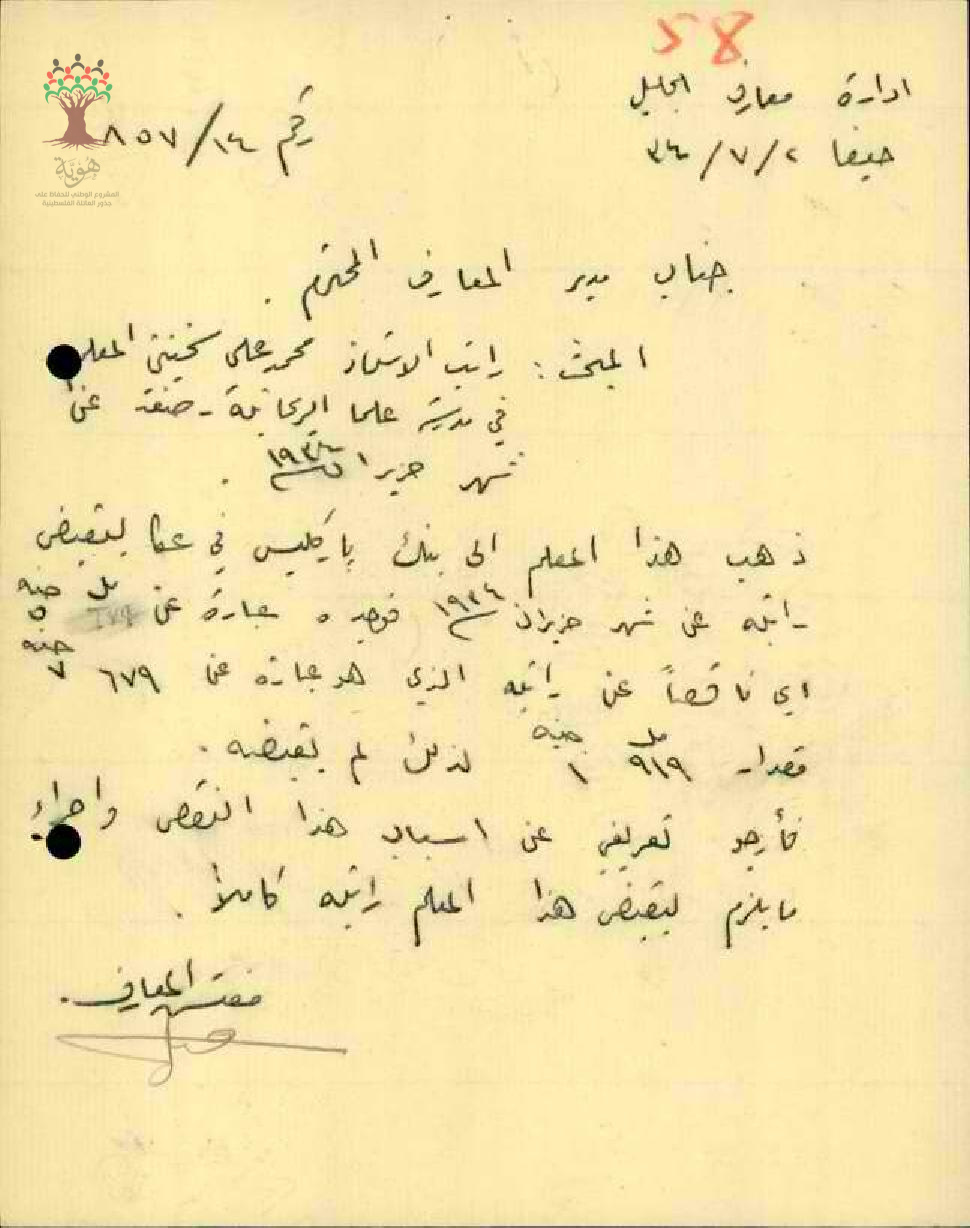 58
ادارة معارف الجليل
حيفا ٢/٧/٣٤
رقم ١٤/٨٥٧
هُوِيَّة
المشروع الوطني للحفاظ على
جذور العائلة الفلسطينية
جناب مدير المعارف المحترم .
المبحث : راتب الاستاذ محمد علي سخنيني المعلم
في مدرسة علما الريحانية - صفد عن
شهر حزيران ١٩٣٤ .
ذهب هذا المعلم الى بنك باركليس في عكا ليقبض
راتبه عن شهر حزيران ١٩٣٤ فوجده عبارة عن مل جنيه ٥
اي ناقصاً عن راتبه الذي هو عبارة عن ٦٧٩ جنيه ٧
مقدار ٩١٩ مل ١ جنيه لذلك لم يقبضه .
فأرجو تعريفي عن اسباب هذا النقص واجراء
ما يلزم ليقبض هذا المعلم راتبه كاملاً .
مفتش المعارف .